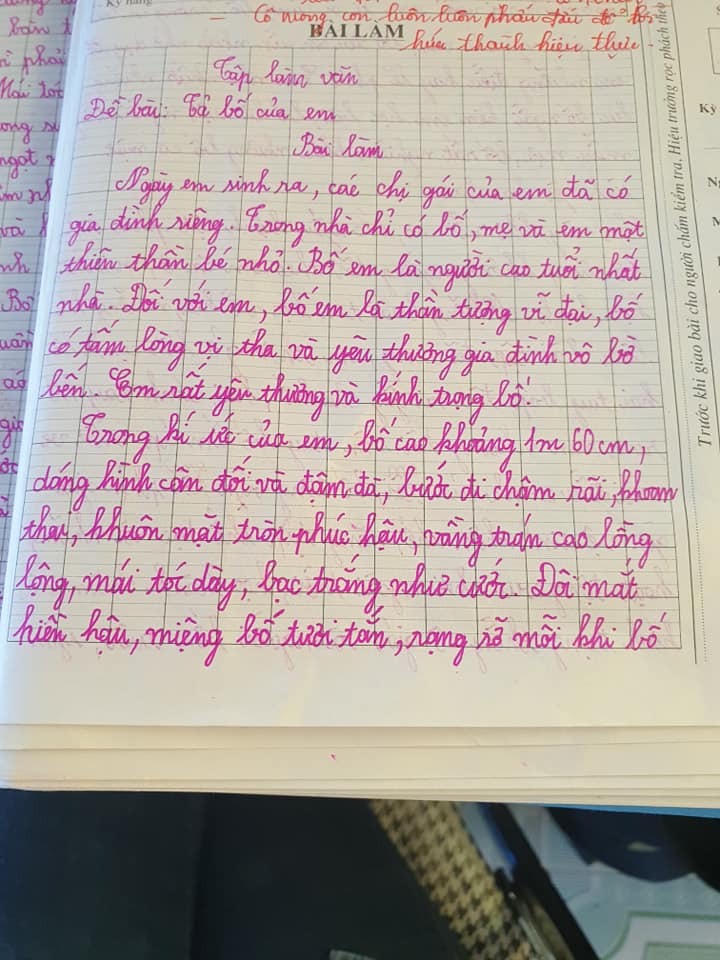 Kỹ năng
– Cô mong con luôn luôn phấn đấu để
BÀI LÀM
thành hiện thực.
Tập làm văn
Đề bài: Tả bố của em
Bài làm
Ngày em sinh ra, các chị gái của em đã có
gia đình riêng. Trong nhà chỉ có bố, mẹ và em một
thiên thần bé nhỏ. Bố em là người cao tuổi nhất
nhà. Đối với em, bố em là thần tượng vĩ đại, bố
có tấm lòng vị tha và yêu thương gia đình vô bờ
bến. Em rất yêu thương và kính trọng bố.
Trong kí ức của em, bố cao khoảng 1m 60 cm,
dáng hình cân đối và đậm đà, bước đi chậm rãi, khoan
thai, khuôn mặt tròn phúc hậu, vầng trán cao lồng
lộng, mái tóc dày, bạc trắng như cước. Đôi mắt
hiền hậu, miệng bố tươi tắn, rạng rỡ mỗi khi bố
Trước khi giao bài cho người chấm kiểm tra. Hiệu trưởng rọc phách theo